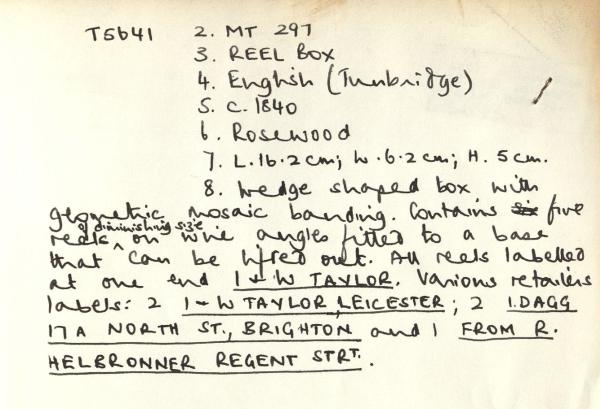 T5641 2. MT 297
3. REEL BOX
4. English (Tunbridge)
5. c. 1840
6. Rosewood
7. L.16.2cm; W.6.2cm; H. 5cm.
8. Wedge shaped box with
geometric mosaic banding. Contains six five
of diminishing size
reels on wire angles fitted to a base
that can be lifted out. All reels labelled
at one end I & W TAYLOR. Various retailers
labels: 2 I & W TAYLOR, LEICESTER; 2 I.DAGG
17A NORTH ST., BRIGHTON and 1 FROM R.
HELBRONNER REGENT STRT.